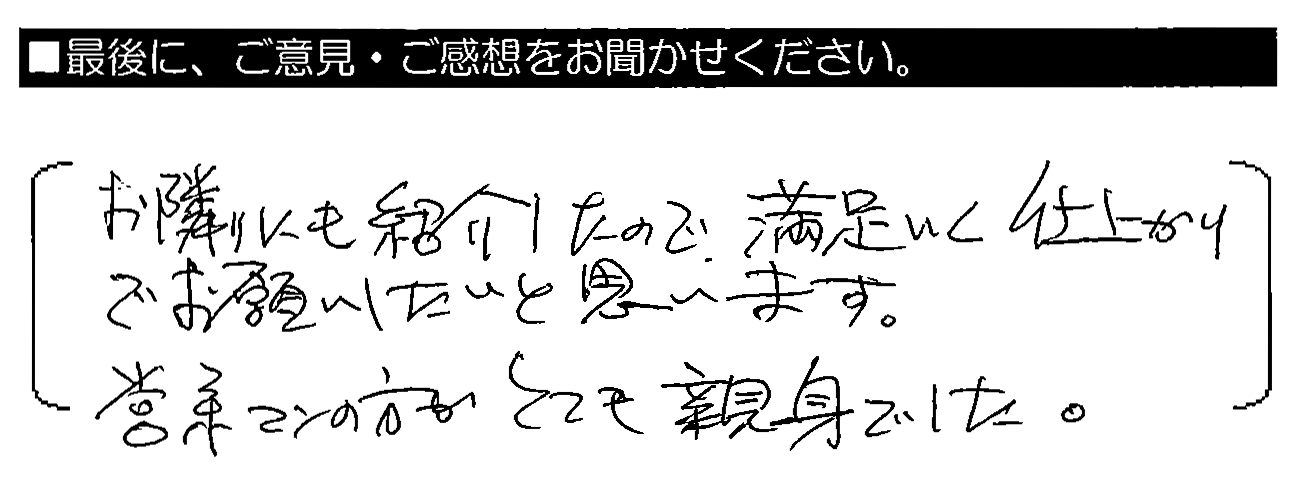 ■最後に、ご意見・ご感想をお聞かせください。
お隣りにも紹介したので、満足いく仕上がり
でお願いしたいと思います。
営業マンの方がとても親身でした。